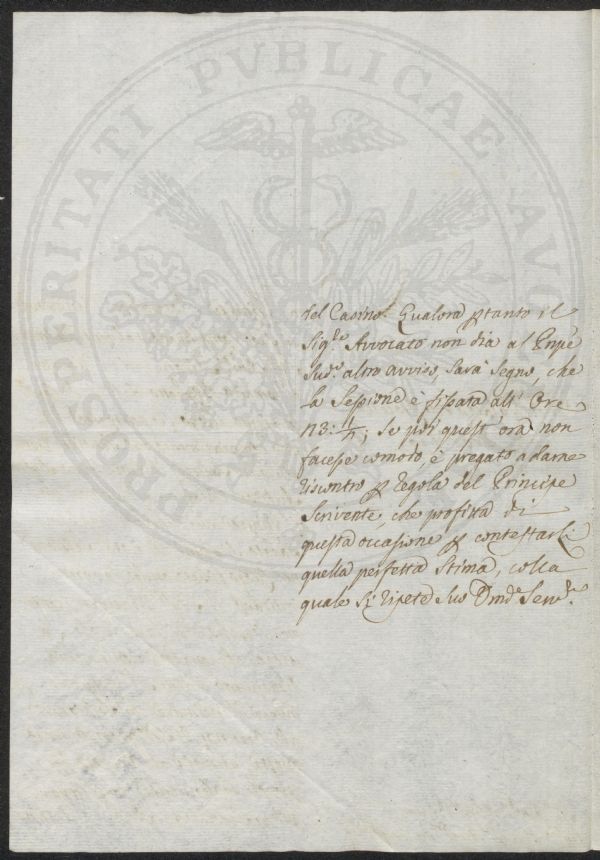 PROSPERITATI PVBLICAE AVG
del Casino. Qualora ptanto il
Sig.re Avvocato non dia al Enpè
Sud.o altro avviso, sarà segno, che
la Sessione è fissata all' Ore
; se poi quest' ora non
facesse comodo, è pregato a darne
riscontro p regola del Principe
Scrivente, che profitta di
questa occasione p contestarli
quella perfetta Stima, colla
quale si ripete suo Serv.e